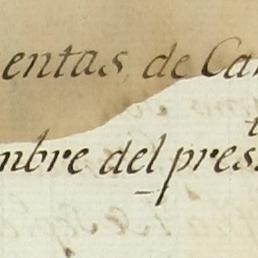 entas, de Ca
mbre del pres